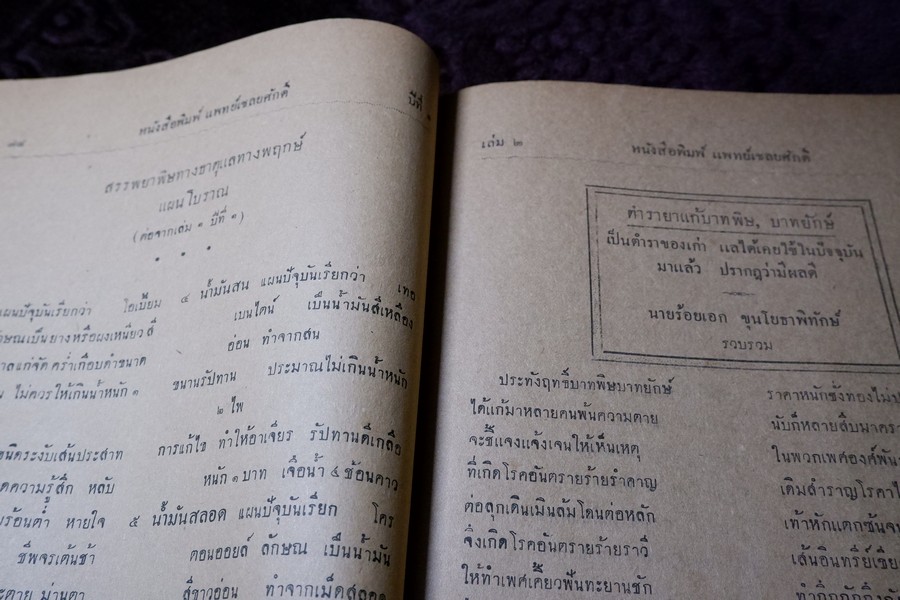 ๘๘ หนังสือพิมพ์ แพทย์เชลยศักดิ์ ปีที่ ๑
สรรพยาพิษทางธาตุแลทางพฤกษ์
แผนโบราณ
(ต่อจากเล่ม ๑ ปีที่ ๑)
แผนปัจุบันเรียกว่า โอเปี้ยม
เป็นยางหรือผงเหนียว สี
แก่จัด คร่ำเกือบดำขนาด
ไม่ควรให้เกินน้ำหนัก ๑
ชนิดระงับเส้นประสาท
ความรู้สึก หลับ
ร้อนต่ำ หายใจ
ชีพจรเต้นช้า
ตาย ม่านตา
๔ น้ำมันสน แผนปัจุบันเรียกว่า เทอ
เบนไตน์ เป็นน้ำมันสีเหลือง
อ่อน ทำจากสน
ขนานรัปทาน ประมาณไม่เกินน้ำหนัก
๒ ไพ
การแก้ไข ทำให้อาเจียร รัปทานดีเกลือ
หนัก ๑ บาท เจือน้ำ ๔ ช้อนคาว
๕ น้ำมันสลอด แผนปัจุบันเรียก โคร
ตอนออยล์ ลักษณ เป็นน้ำมัน
สีขาวอ่อน ทำจากเม็ดสลอด
เล่ม ๒ หนังสือพิมพ์ แพทย์เชลยศักดิ์
ตำรายาแก้บาทพิษ, บาทยักษ์
เป็นตำราของเก่า แลได้เคยใช้ในปัจจุบัน
มาแล้ว ปรากฏว่ามีผลดี
นายร้อยเอก ขุนโยธาพิทักษ์
รวบรวม
ประทังฤทธิ์บาทพิษบาทยักษ์ ราคาหนักชั่งทองไม่
ได้แก้มาหลายคนพ้นความตาย นับก็หลายสิบนาครา
จะชี้แจงแจ้งเจนให้เห็นเหตุ ในพวกเพศองค์พัน
ที่เกิดโรคอันตรายร้ายรำคาญ เดิมสำราญโรคา
ต่อลุกเดินเมินล้มโดนต่อหลัก เท้าหักแตกซ้น
จึ่งเกิดโรคอันตรายร้ายราวี เส้นอินทรีย์
ให้ทำเพศเคี้ยวฟันทะยานชัก